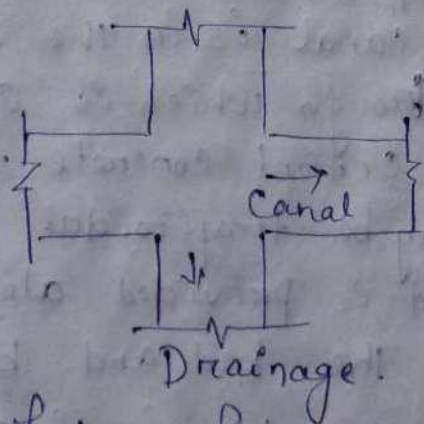 Canal
Drainage.